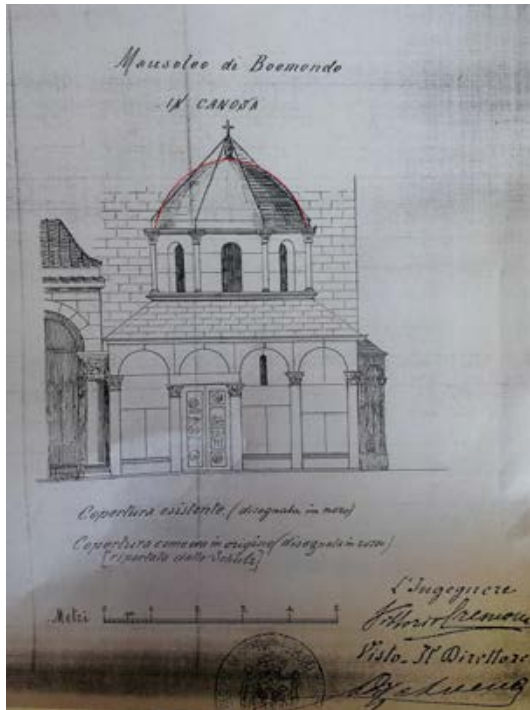 Mausoleo di Boemondo
IN CANOSA
Copertura esistente (disegnata in nero)
Copertura come era in origine (disegnata in rosso)
[riportata dallo Schulz]
Metri
L'Ingegnere
Vittorio
Visto - Il Direttore